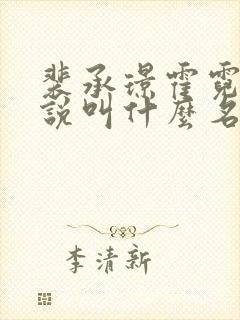 裴承璟霍霓
說叫什麼名
李清新